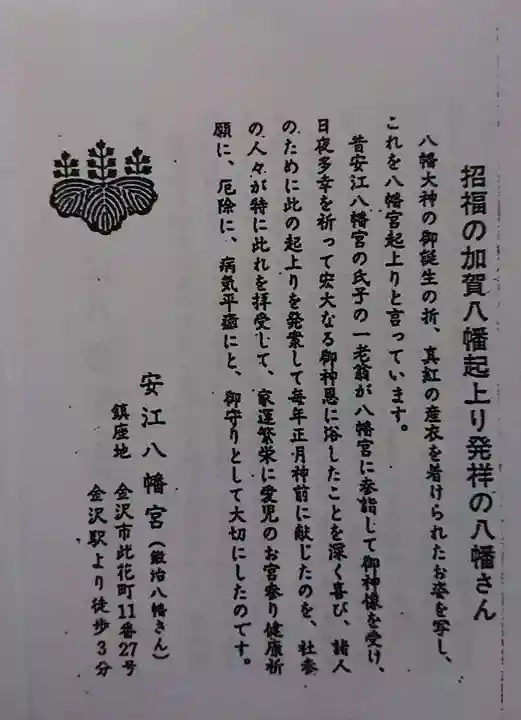 招福の加賀八幡起上り発祥の八幡さん
八幡大神の御誕生の折、真紅の産衣を着けられたお姿を写し、
これを八幡宮起上りと言っています。
昔安江八幡宮の氏子の一老翁が八幡宮に参詣じて御神様を受け、
日夜多幸を祈って宏大なる御神恩に浴したことを深く喜び、諸人
のために此の起上りを発案して毎年正月神前に献じたのを、社参
の人々が特に此れを拝受して、家運繁栄に愛児のお宮参り健康祈
願に、厄除に、病気平癒にと、御守りとして大切にしたのです。
安江八幡宮(鍛治八幡さん)
鎮座地 金沢市此花町11番27号
金沢駅より徒歩3分